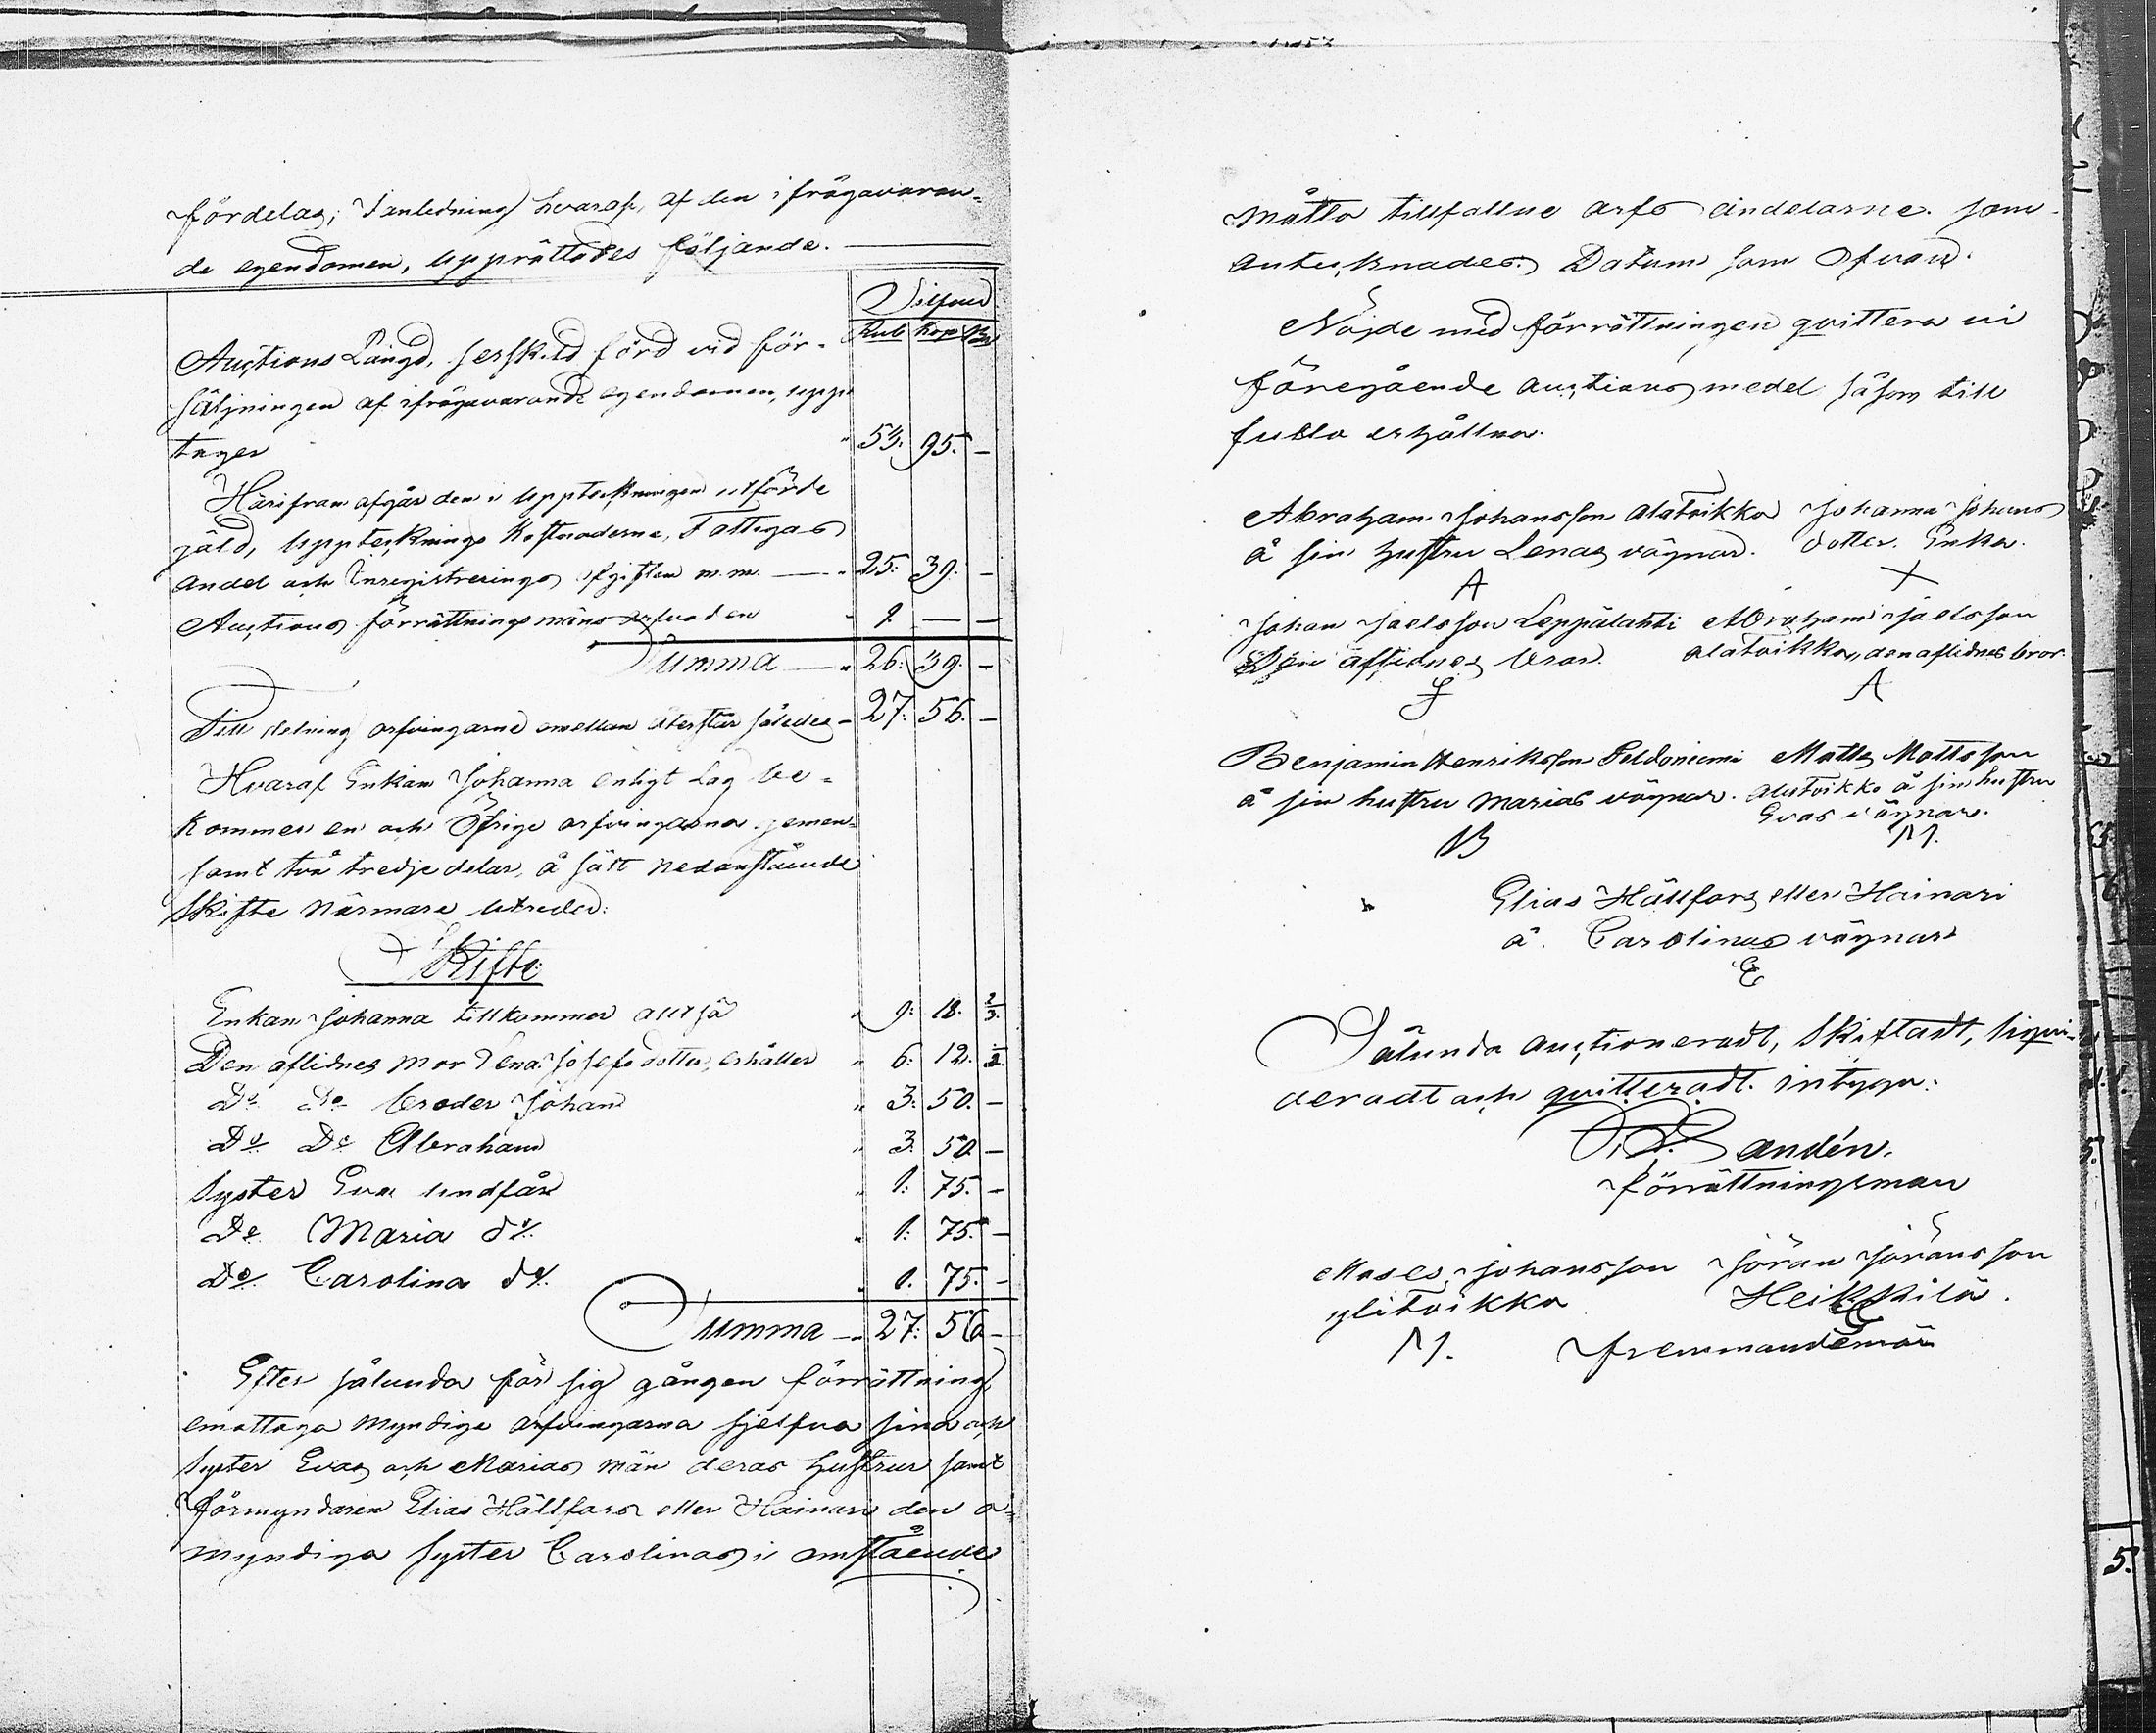 fördelas; I anledning hvaraf, af den ifrågavaran-
de egendomen, upprättades följande.
Silfver
Rub Kop
Auctions Längd, serskild förd vid för-
säljningen af ifrågavarande egendomen, upp
tager " 53. 95. —
Härifrån afgår den i Uppteckningen utförde
gäld, Uppteknings Kostnaderne, Fattigas
andel och Inregistrerings afgiften m.m. — " 25. 39. —
Auctions förrättningsmäns arfvoden " 1. — —
Summa — " 26. 39. —
Till delning arfvingarne emellan återstår således — 27. 56. —
Hvaraf Enkan Johanna enligt Lag be-
kommer en och Öfrige arfvingarna gemen-
samt två tredjedelar, å sätt nedanstående
Skifte närmare utreder:
Skifte
Enkan Johanna tillkommer altså " 9: 18. 2/3.
Den aflidnes mor Lena Josefsdotter, erhåller " 6: 12.
Do Do broder Johan " 3: 50. —
Do Do Abraham " 3. 50 —
Syster Eva undfår " 1: 75. —
Do Maria do " 1: 75. —
Do Carolina do " 1. 75. —
Summa — " 27: 56 —
Efter sålunda för sig gången förrättning
emottoga myndige arfvingarna sjelfva sina och
Syster Evas och Marias män deras hustrur samt
förmyndaren Elias Hällfors eller Hainari den o-
myndiga Syster Carolinas i omstående
måtto tillfallne arfs andelarne. som
antecknades. Datum som Ofvan.
Nöjde med förrättningen quittera vi
föregående auctions medel såsom till
fullo erhållna.
Abraham Johansson Alatoikka Johanna Johans
å sin hustru Lenas vägnar. dotter. Enka.
A X
Johan Jaelsson Leppälahti Abraham Jaelsson
Den aflidnes bror. Alatoikka, den aflidnes bror.
J A
Benjamin Henriksson Peldoniemi Matts Mattsson
å sin hustru Marias vägnar. Alatoikka å sin hustru
Evas vägnar.
B M.
Elias Hällfors eller Hainari
å. Carolinas vägnar
E
Sålunda auctioneradt, Skiftadt, liqvi-
deradt och quitteradt. intyga:
Sandén.
förrättningsman
Moses Johansson Jöran Jöransson
ylitoikka Heikkilä.
M. fremmandemän
5.
5.